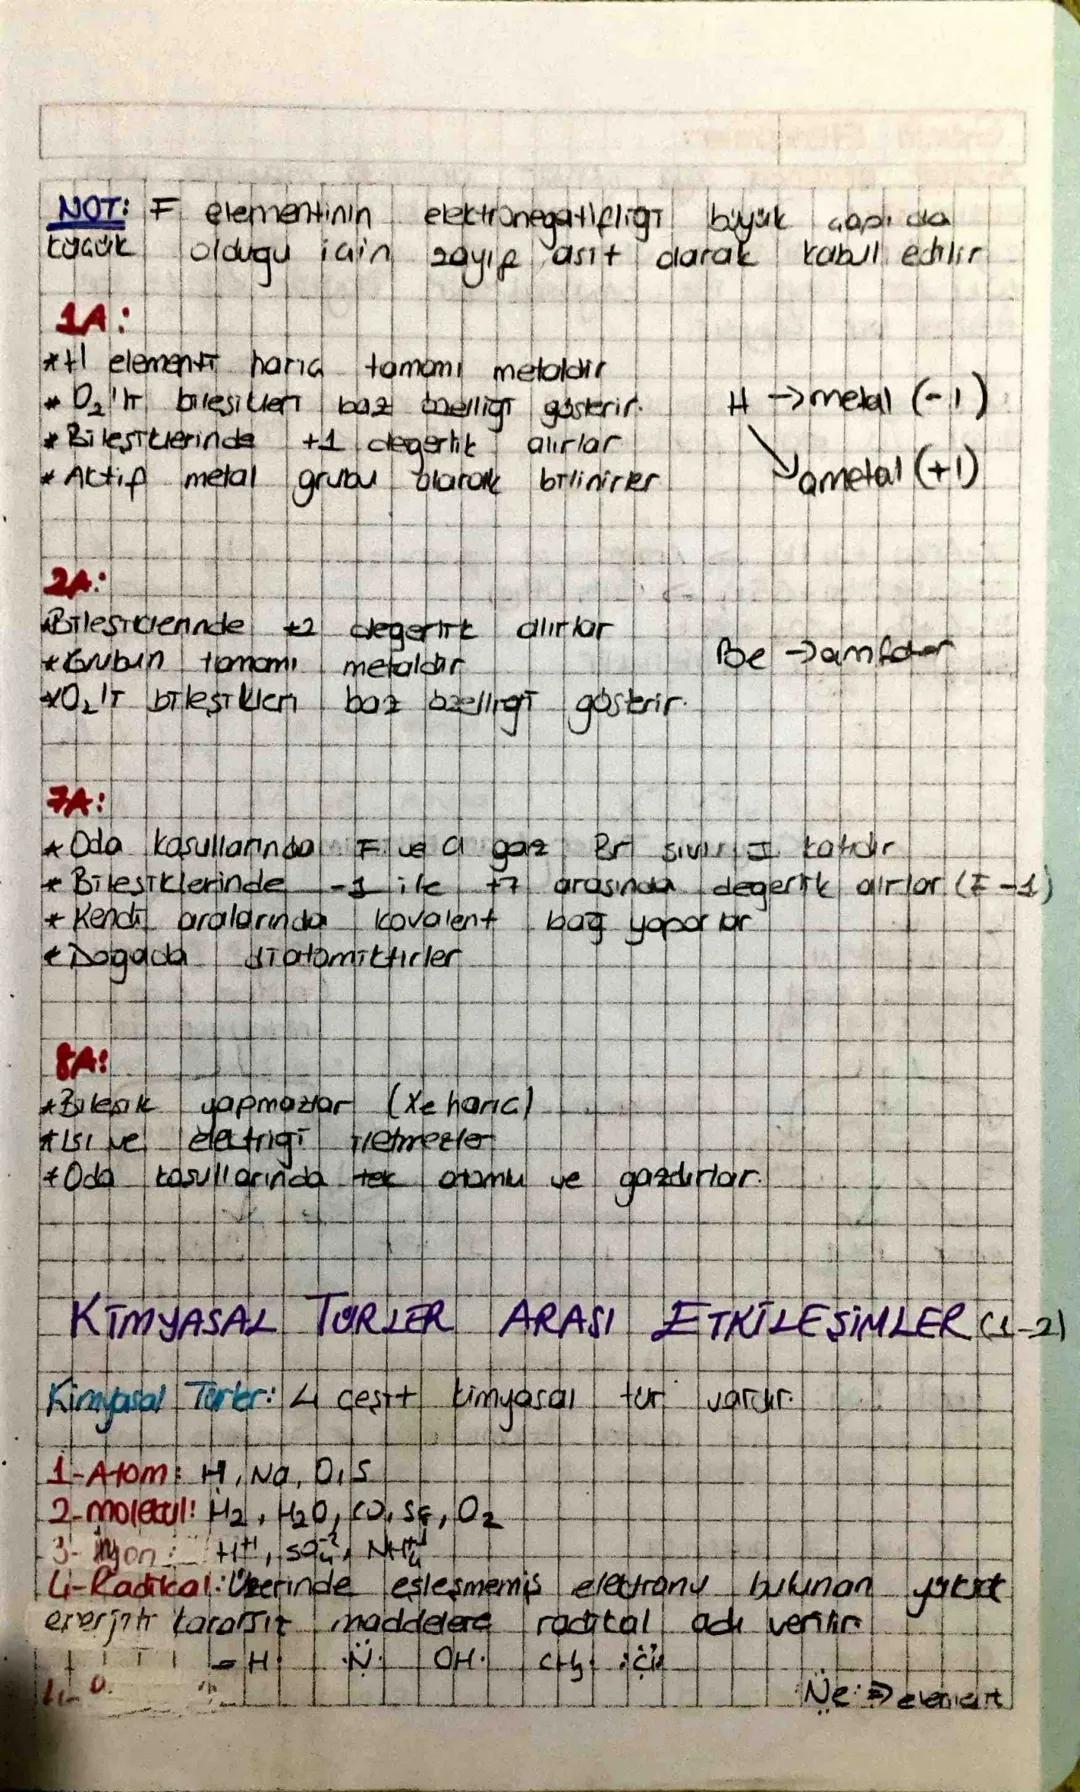 NOT: F elementinin elektronegatifliği büyük çapı da
küçük olduğu için zayıf asit olarak kabul edilir
1A:
*H elementi hariç tamamı metaldir
* O₂'li bileşikleri baz özelliği gösterir.
* Bileşiklerinde +1 değerlik alırlar
* Aktif metal grubu olarak bilinirler
H → metal (-1)
ametal (+1)
2A:
*Bileşiklerinde +2 değerlik alırlar
*Grubun tamamı metaldir
*O₂'li bileşikleri baz özelliği gösterir.
Be → amfoter
7A:
* Oda koşullarında F ve Cl gaz Br sıvı I katıdır
* Bileşiklerinde -1 ile +7 arasında değerlik alırlar (F -1)
* Kendi aralarında kovalent bağ yaparlar
* Doğada diatomiktirler
8A:
*Bileşik yapmazlar (Xe hariç)
*Isı ve elektriği iletmezler
*Oda koşullarında tek atomlu ve gazdırlar.
KİMYASAL TÜRLER ARASI ETKİLEŞİMLER (1-2)
Kimyasal Türler: 4 çeşit kimyasal tür vardır.
1-Atom: H, Na, O, S
2-molekül: H₂, H₂O, CO, O₂
3- iyon: H⁺¹, SO₄⁻², NH₄⁺¹
4-Radikal: Üzerinde eşleşmemiş elektronu bulunan yüksek
enerjili kararsız maddelere radikal adı verilir.
H· ·N̈· OH· CH₃· :C̈l·
N̈e: ⇒ element